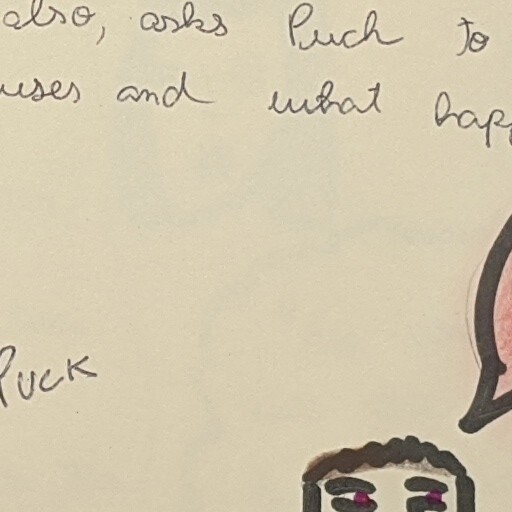 also, asks Puck to
uses and what happ
Puck